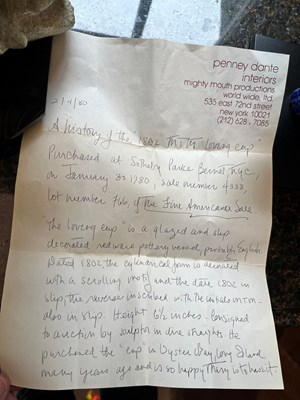 penney dante
interiors
mighty mouth productions
world wide, ltd.
535 east 72nd street
new york 10021
(212) 628-7085
2/1/80
A history of the "1802 MTM loving cup"
Purchased at Sotheby Parke Bernet NYC,
on January 30 1980, sale number 4338,
lot number of The Fine Americana Sale
"The loving cup" is a glazed and slip
decorated redware pottery vessel, probably English.
Dated 1802, the cylindrical form is decorated
with a scrolling motif and the date 1802 in
slip, the reverse inscribed with the initials MTM -
also in slip. Height 6½ inches. Consigned
to auction by sculptor He
purchased the "cup in Oyster Bay, Long Island
many years ago and is so happy Mary